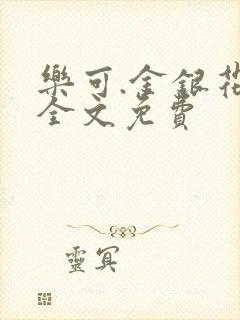 樂可.金銀花
全文免費
靈冥